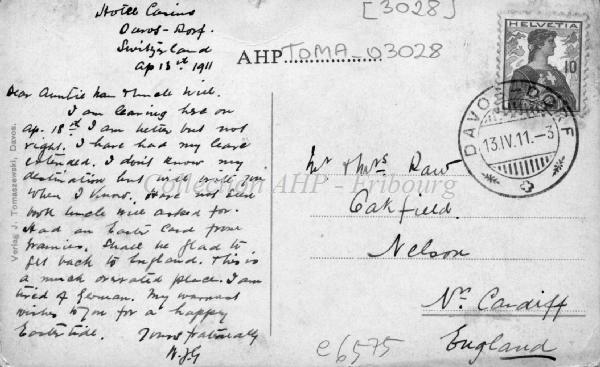 Hotel Carins
Davos-Dorf.
Switzerland
Ap 13th 1911
[3028]
AHP TOMA-03028
HELVETIA
10
DAVOS-DORF
13.IV.11.-3
Dear Auntie Nan & Uncle Will.
I am leaving here on
Ap. 18th I am better but not
right. I have had my leave
extended. I don't know my
destination but will write you
when I know. Have not seen
book Uncle Will asked for.
Had an Easter Card from
Frannies. Shall be glad to
get back to England. This is
a much overrated place. I am
tired of German. My warmest
wishes to you for a happy
Eastertide. Yours fraternally
W.J.G
Verlag J. Tomaszewski, Davos.
Collection AHP - Fribourg
Mr & Mrs Daw
Oakfield.
Nelson
Nr. Cardiff
England
e6575